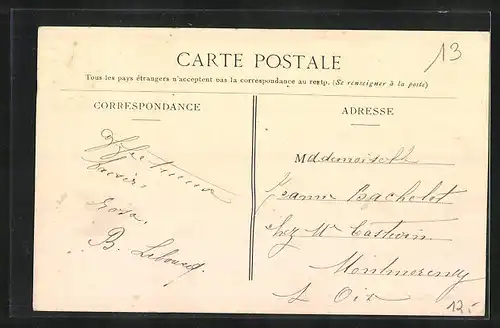 13
CARTE POSTALE
Tous les pays étrangers n'acceptent pas la correspondance au recto. (Se renseigner à la poste)
CORRESPONDANCE
ADRESSE
Affectueux
B. Leboucq
Mademoiselle
Jeanne Bachelot
chez Mr
Montmorency
S Oise
12.-